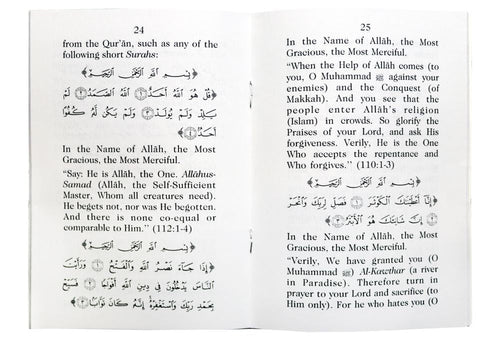 24
from the Qur'ân, such as any of the
following short Surahs:
﴿ بِسْمِ اللَّهِ الرَّحْمَٰنِ الرَّحِيمِ ﴾
﴿ قُلْ هُوَ اللَّهُ أَحَدٌ ١ اللَّهُ الصَّمَدُ ٢ لَمْ
يَلِدْ وَلَمْ يُولَدْ ٣ وَلَمْ يَكُن لَّهُ كُفُوًا
أَحَدٌ ٤ ﴾
In the Name of Allâh, the Most
Gracious, the Most Merciful.
"Say: He is Allâh, the One. Allâhus-
Samad (Allâh, the Self-Sufficient
Master, Whom all creatures need).
He begets not, nor was He begotten.
And there is none co-equal or
comparable to Him." (112:1-4)
﴿ بِسْمِ اللَّهِ الرَّحْمَٰنِ الرَّحِيمِ ﴾
﴿ إِذَا جَاءَ نَصْرُ اللَّهِ وَالْفَتْحُ ١ وَرَأَيْتَ
النَّاسَ يَدْخُلُونَ فِي دِينِ اللَّهِ أَفْوَاجًا ٢ فَسَبِّحْ
بِحَمْدِ رَبِّكَ وَاسْتَغْفِرْهُ إِنَّهُ كَانَ تَوَّابًا ٣ ﴾
25
In the Name of Allâh, the Most
Gracious, the Most Merciful.
"When the Help of Allâh comes (to
you, O Muhammad ﷺ against your
enemies) and the Conquest (of
Makkah). And you see that the
people enter Allâh's religion
(Islam) in crowds. So glorify the
Praises of your Lord, and ask His
forgiveness. Verily, He is the One
Who accepts the repentance and
Who forgives." (110:1-3)
﴿ بِسْمِ اللَّهِ الرَّحْمَٰنِ الرَّحِيمِ ﴾
﴿ إِنَّا أَعْطَيْنَاكَ الْكَوْثَرَ ١ فَصَلِّ لِرَبِّكَ وَانْحَرْ
٢ إِنَّ شَانِئَكَ هُوَ الْأَبْتَرُ ٣ ﴾
In the Name of Allâh, the Most
Gracious, the Most Merciful.
"Verily, We have granted you (O
Muhammad ﷺ) Al-Kawthar (a river
in Paradise). Therefore turn in
prayer to your Lord and sacrifice (to
Him only). For he who hates you (O